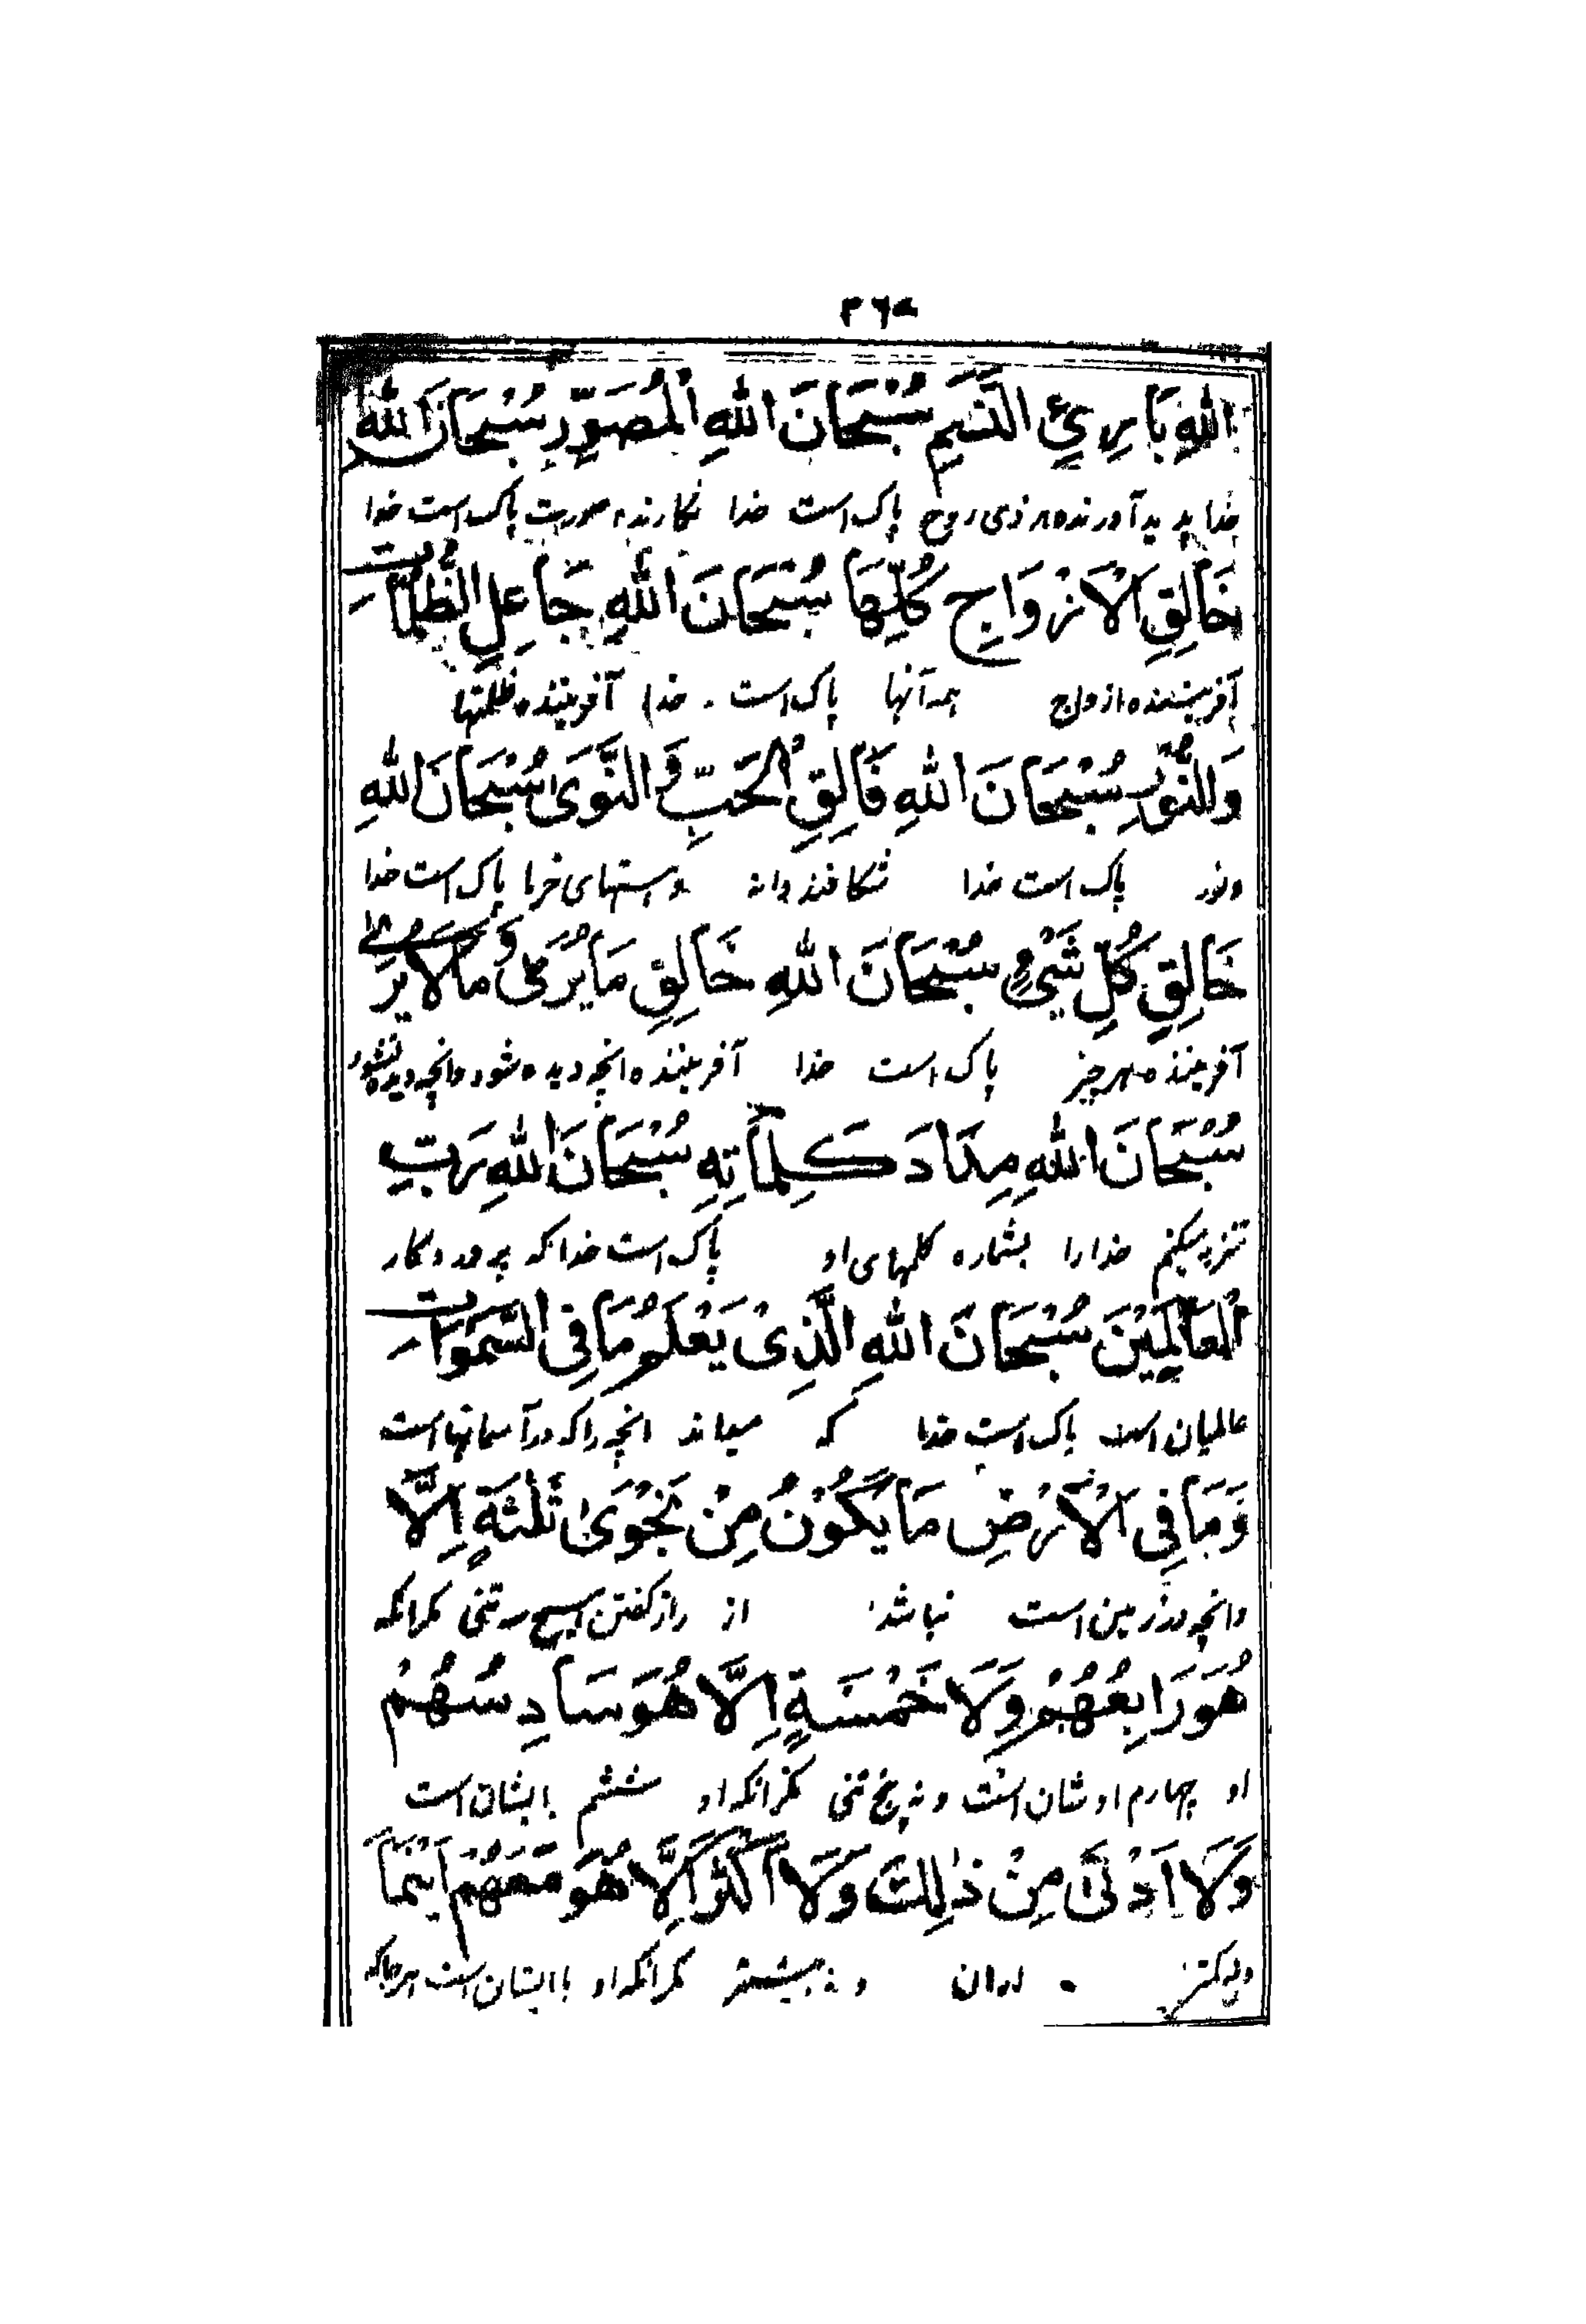 ٣٦٥
اللهِ بَارِئِ النَّسَمِ سُبْحَانَ اللهِ الْمُصَوِّرِ سُبْحَانَ اللهِ
خدا پدید آورنده هر ذی روح پاک است خدا نگارنده صورت پاک است خدا
خَالِقِ الْاَزْوَاجِ كُلِّهَا سُبْحَانَ اللهِ جَاعِلِ الظُّلُمَاتِ
آفریننده ازواج همه آنها پاک است خدا آفریننده ظلمتها
وَالنُّوْرِ سُبْحَانَ اللهِ فَالِقِ الْحَبِّ وَالنَّوَى سُبْحَانَ اللهِ
ونور پاک است خدا شکافنده دانه و استهای خرما پاک است خدا
خَالِقِ كُلِّ شَیْءٍ سُبْحَانَ اللهِ خَالِقِ مَا يُرٰى وَمَا لَا يُرٰى
آفریننده هر چیز پاک است خدا آفریننده انچه دیده شود وانچه دیده نشود
سُبْحَانَ اللهِ مِدَادَ كَلِمَاتِهِ سُبْحَانَ اللهِ رَبِّ
تنزیه میکنم خدا را بشماره کلمهای او پاک است خدا که پروردگار
الْعَالَمِيْنَ سُبْحَانَ اللهِ الَّذِیْ يَعْلَمُ مَا فِی السَّمٰوَاتِ
عالمیان است پاک است خدا که میداند انچه را که در آسمانها است
وَمَا فِی الْاَرْضِ مَا يَكُوْنُ مِنْ نَجْوٰى ثَلٰثَةٍ اِلَّا
وانچه در زمین است نباشد از راز گفتن هیچ سه تنی مگر انکه
هُوَ رَابِعُهُمْ وَلَا خَمْسَةٍ اِلَّا هُوَ سَادِسُهُمْ
او چهارم اوشان است و نه پنج تنی مگر انکه او ششم ایشان است
وَلَا اَدْنٰى مِنْ ذٰلِكَ وَلَا اَكْثَرَ اِلَّا هُوَ مَعَهُمْ اَيْنَمَا
ونه کمتر از ان و نه بیشتر مگر انکه او با ایشان است هر جا که